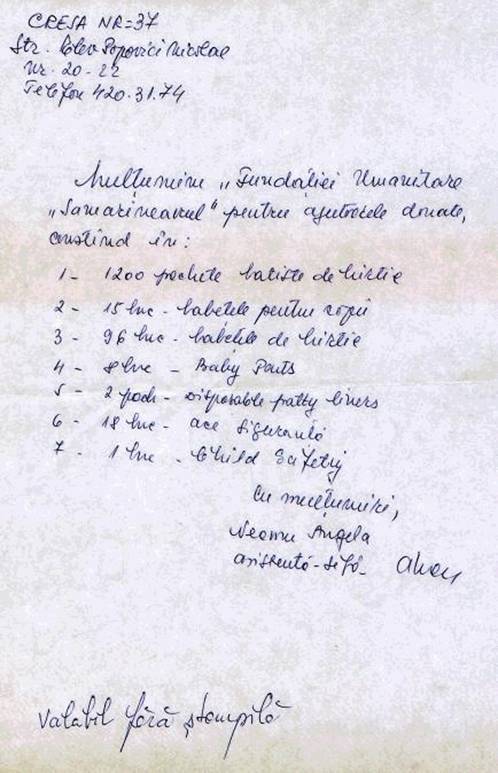 CRESA NR=37
Str. Popovici Nicolae
Nr. 20-22
Telefon 420.31.74
Mulțumim „Fundației Umanitare
„Samarineanul" pentru ajutoarele donate,
constînd în:
1- 1200 pachete batiste de hîrtie
2- 15 buc - babețele pentru copii
3- 96 buc - babețele de hîrtie
4- 8 buc - Baby Pants
5- 2 pach - Disposable patty liners
6- 18 buc - ace siguranță
7- 1 buc - Child Safety
Cu mulțumiri,
Neamu Angela
asistentă-șefă
Valabil fără ștampilă